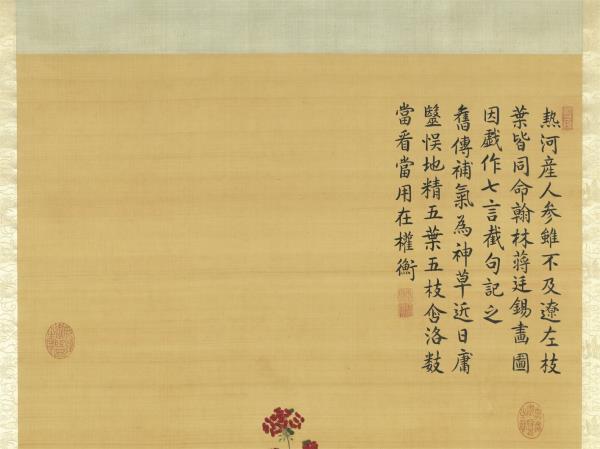 熱河産人參雖不及遼左枝
葉皆同命翰林蔣廷錫畵圖
因戲作七言截句記之
舊傳補氣為神草近日庸
毉悮地精五葉五枝含洛數
當看當用在權衡